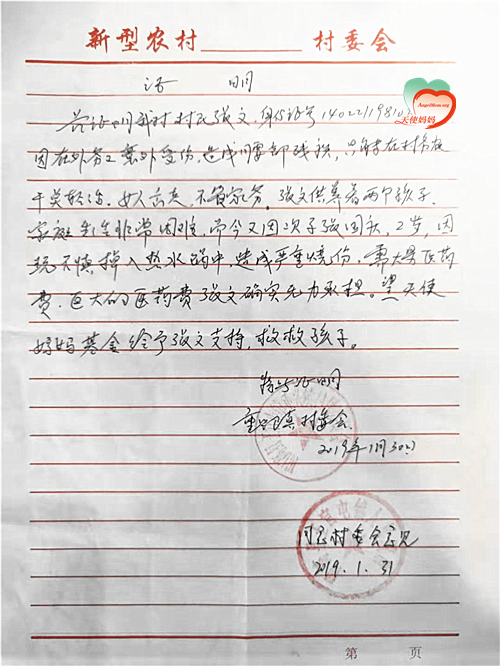 新型农村 村委会
证 明
兹证明我村村民张文，身份证号1402211981
因在外务工意外受伤，造成腰部残疾，只能在村帮衣
干点轻活。女人出走，不负家务。张文供养着两个孩子，
家庭生活非常困难，而今又因次子张国，2岁，因
玩不慎掉入热水锅中，造成严重烧伤，需大量医药
费，巨大的医药费张文确实无力承担。望天使
妈妈基金给予张文支持，救救孩子。
特此证明
村委会
2019年1月30日
同意村委会意见
2019.1.31
第 页
Angelmom.org
天使妈妈